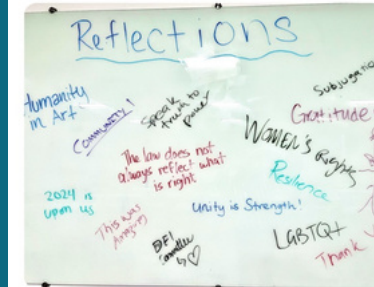 Reflections
Humanity
in Art
COMMUNITY!
Speak
truth to
power
Subjugatio
Gratitude
WOMEN'S Rights
The law does not
always reflect what
is right
Resilience
2024 is
upon us
Unity is Strength!
This was
Amazing
DEI
Committee
LGBTQ+
Thank